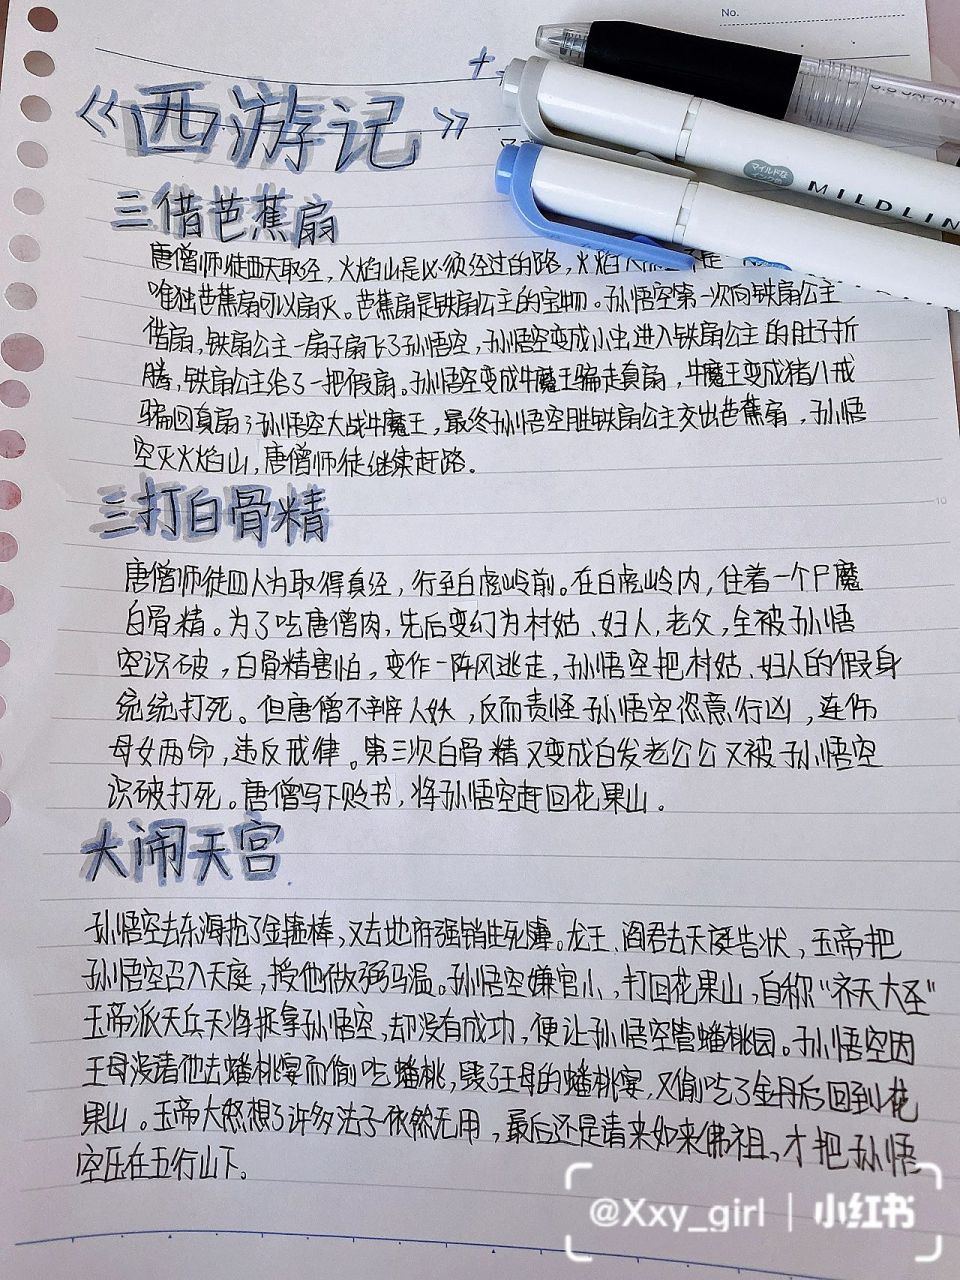 No.
《西游记》
マイルドな
インクの
MILDLIN
三借芭蕉扇
唐僧师徒西天取经，火焰山是必须经过的路，火焰
唯独芭蕉扇可以扇灭。芭蕉扇是铁扇公主的宝物。孙悟空第一次向铁扇公主
借扇，铁扇公主一扇子扇飞了孙悟空，孙悟空变成小虫进入铁扇公主的肚子折
腾，铁扇公主给了一把假扇。孙悟空变成牛魔王骗走真扇，牛魔王变成猪八戒
骗回真扇，孙悟空大战牛魔王，最终孙悟空胜铁扇公主交出芭蕉扇，孙悟
空灭火焰山，唐僧师徒继续赶路。
三打白骨精
唐僧师徒四人为取得真经，行至白虎岭前。在白虎岭内，住着一个尸魔
白骨精。为了吃唐僧肉，先后变幻为村姑、妇人，老父，全被孙悟
空识破，白骨精害怕，变作一阵风逃走，孙悟空把村姑、妇人的假身
统统打死。但唐僧不辨人妖，反而责怪孙悟空恣意行凶，连伤
母女两命，违反戒律。第三次白骨精又变成白发老公公又被孙悟空
识破打死。唐僧写下贬书，将孙悟空赶回花果山。
10
大闹天宫
孙悟空去东海抢了金箍棒，又去地府强销生死簿。龙王、阎君去天庭告状，玉帝把
孙悟空召入天庭，授他做弼马温。孙悟空嫌官小，打回花果山，自称“齐天大圣”
玉帝派天兵天将捉拿孙悟空，却没有成功，便让孙悟空管蟠桃园。孙悟空因
王母没请他去蟠桃宴而偷吃蟠桃，毁了王母的蟠桃宴，又偷吃了金丹后回到花
果山。玉帝大怒想了许多法子依然无用，最后还是请来如来佛祖，才把孙悟
空压在五行山下。
@Xxy_girl | 小红书